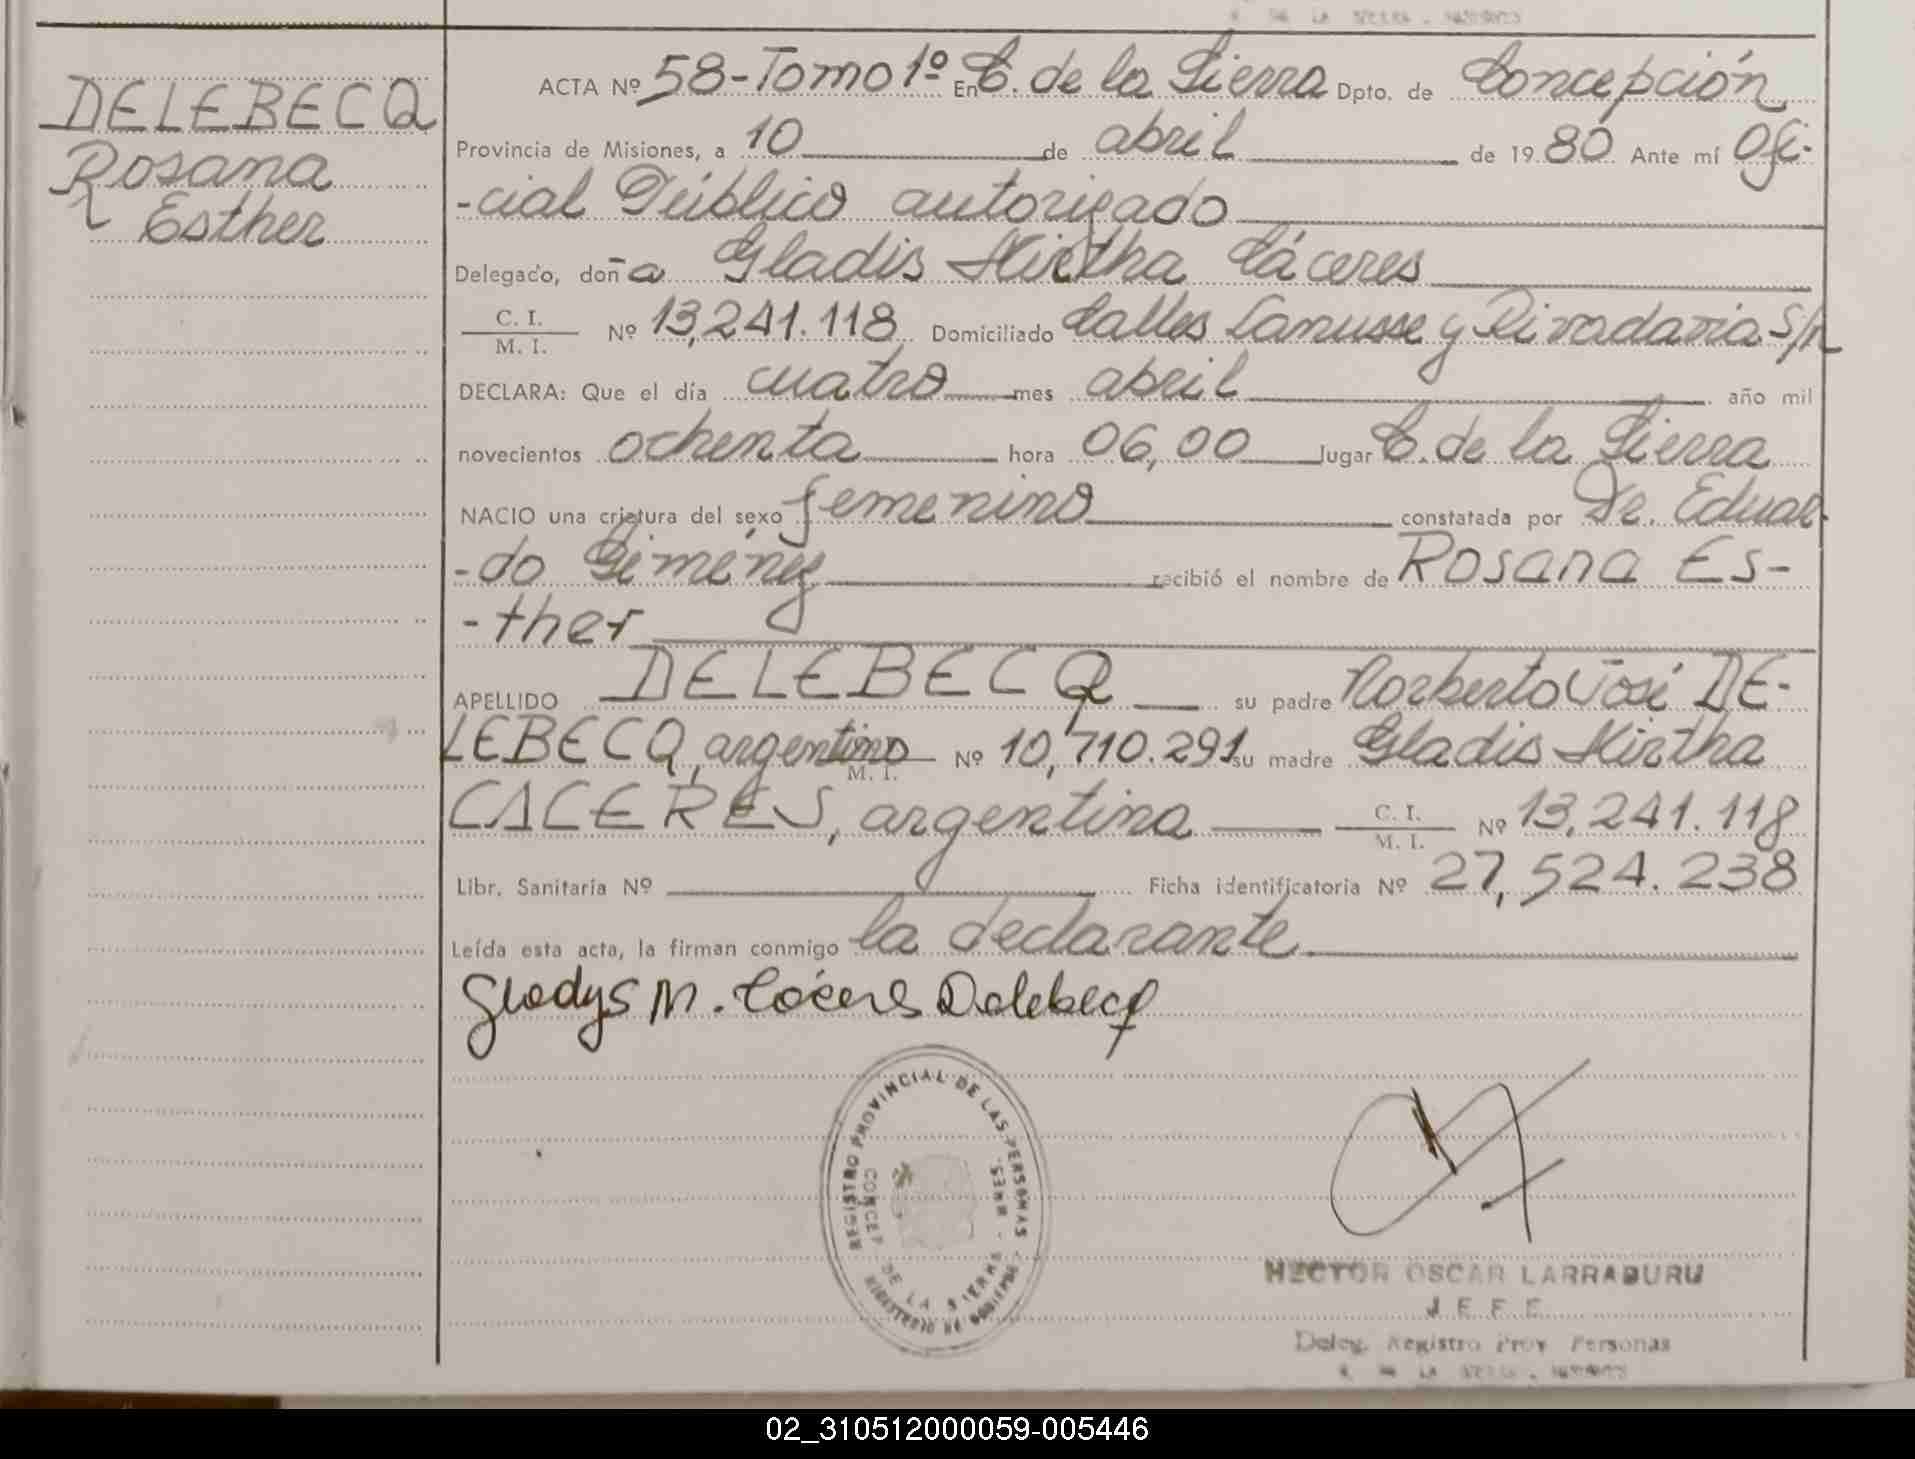 DELEBECQ
Rosana
Esther
ACTA Nº 58-Tomo 1º En C. de la Sierra Dpto. de Concepción
Provincia de Misiones, a 10 de abril de 1980 Ante mí Ofi-
-cial Público autorizado
Delegado, doña Gladis Mirtha Cáceres
C. I.
M. I.
Nº 13,241.118 Domiciliado Calles Lanusse y Rivadavia S/n
DECLARA: Que el día cuatro mes abril año mil
novecientos ochenta hora 06,00 lugar C. de la Sierra
NACIO una criatura del sexo femenino constatada por Dr. Eduar-
-do Giménez recibió el nombre de Rosana Es-
-ther
APELLIDO DELEBECQ su padre Norberto José DE-
LEBECQ, argentino M. I. Nº 10,710.291 su madre Gladis Mirtha
CACERES, argentina C. I. M. I. Nº 13,241.118
Libr. Sanitaria Nº Ficha identificatoria Nº 27,524.238
Leída esta acta, la firman conmigo la declarante
Gladys M. Cáceres Delebecq
REGISTRO PROVINCIAL DE LAS PERSONAS
CONCEP. DE LA SIERRA - MNES.
MINISTERIO DE GOBIERNO
HECTOR OSCAR LARRABURU
JEFE
Deleg. Registro Prov Personas
DE LA SIERRA - MISIONES
02_310512000059-005446